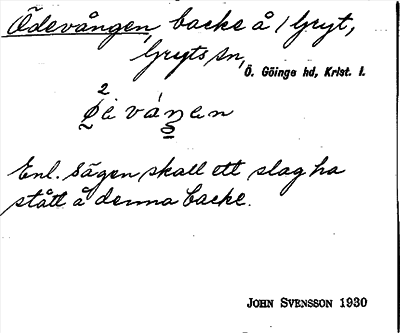 Ödevången, backe å 1 Gryt,
Gryts sn,
Ö. Göinge hd, Krist. l.
Enl. sägen skall ett slag ha
stått å denna backe.
JOHN SVENSSON 1930